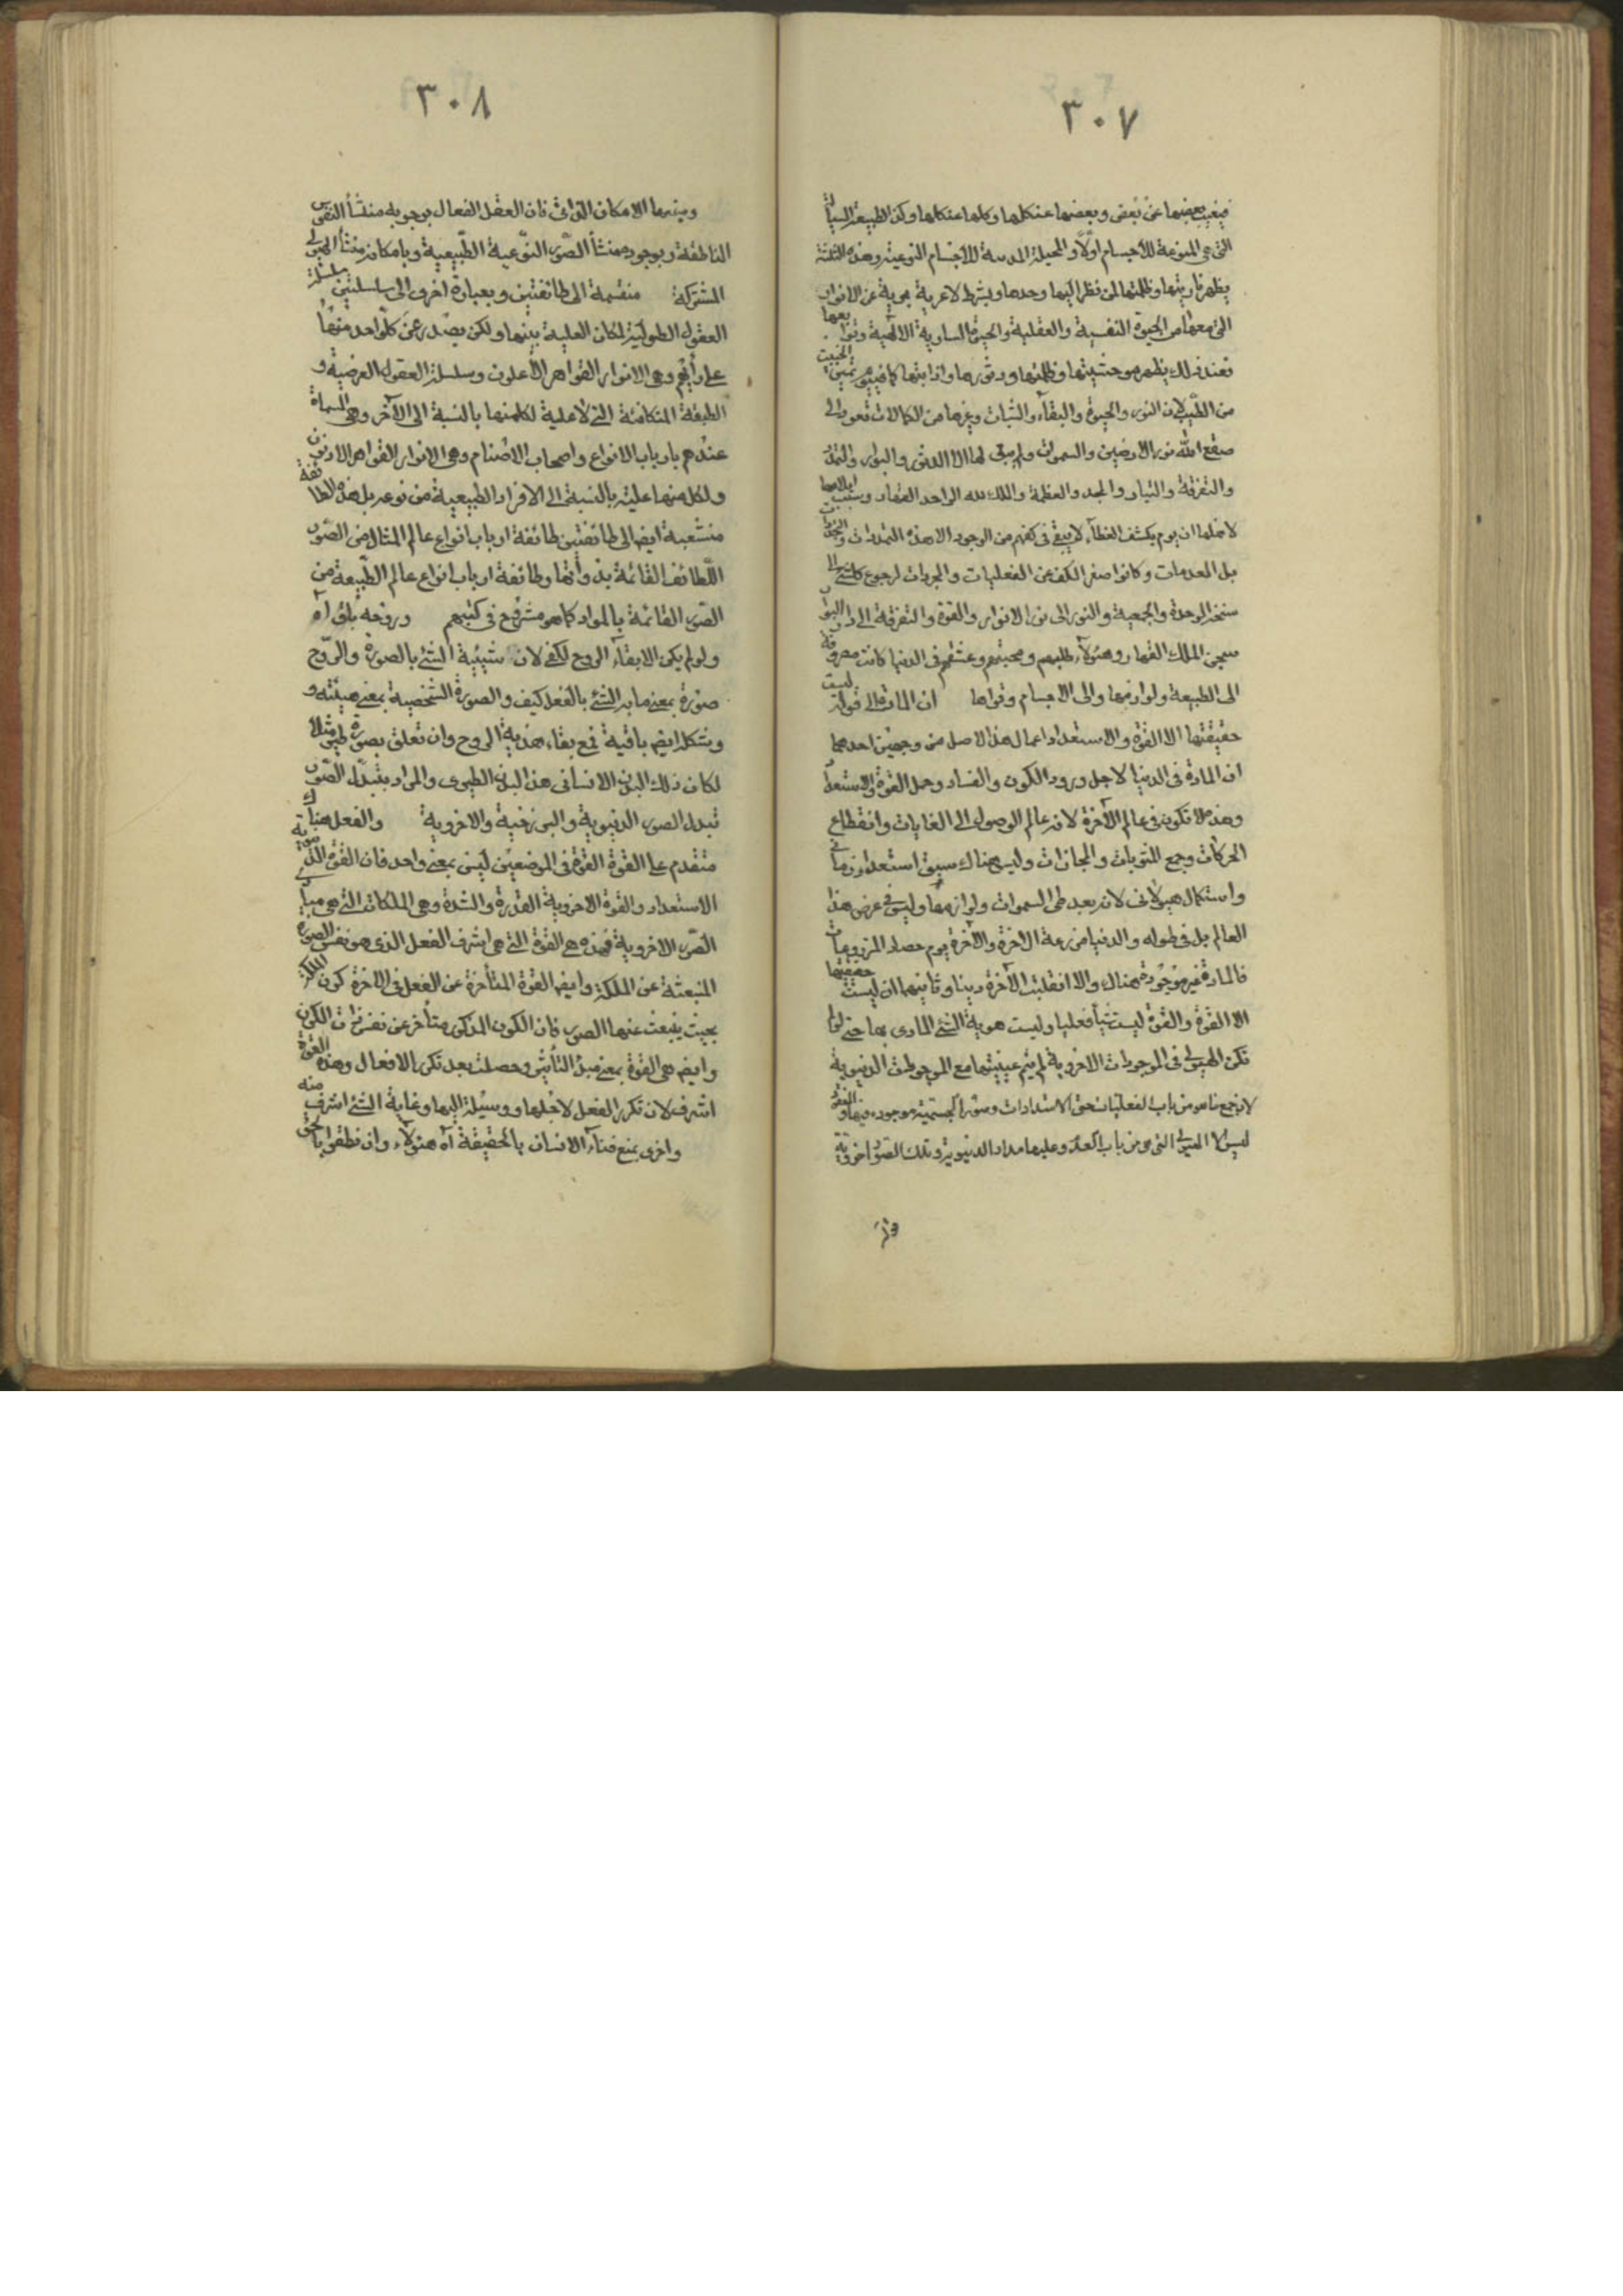 ٣٠٧
فيغيب بعضها عن بعض وبعضها عن كلها وكلها عن كلها وكذا الطبيعة السيالة
التى هى المنوعة للاجسام اولا و المحيلة للاجسام النوعية وهذه الثلثة
يظهر تاريتها وظلمتها لمن نظر اليها وحدها وبشرط لا عرية عن الانوار
التى معها من الحيوة النفسية والعقلية والحيوة السارية الالهية وتوابعها
فعند ذلك يظهر وحشيتها وظلمتها ودثورها واذايتها كما فى يوم تميز الخبيث
من الطيب لان النور والحيوة والبقاء والثبات وغيرها من الكمالات تعود الى
صقع الله نور الارضين والسموات ولم يبق لها الا الدثور والبوار والتمدد
والتفرقة والتبار والمجد والعظمة والملك لله الواحد القهار وسبب ايلامها
لاهلها ان يوم يكشف الغطاء لا يبقى فى كفهم من الوجود الا هذه التمددات والتجددات
بل المعدومات وكانوا صفر الكف عن الفعليات والمجردات لرجوع كل شىء الى
سنخه الوحدة والجمعية والنور الى نور الانوار والقوة والتفرقة الى دار البوار
سجن الملك القهار وهؤلاء طلبهم ومحبتهم وعشقهم فى الدنيا كانت مصروفة
الى الطبيعة ولوازمها والى الاجسام وقواها ان المادة الى قوله ليست
حقيقتها الا القوة والاستعداد اعمال هذا الاصل من وجهين احدهما
ان المادة فى الدنيا لاجل ورود الكون والفساد وحمل القوة والاستعداد
وهذه لا تكون فى عالم الآخرة لانه عالم الوصول الى الغايات وانقطاع
الحركات وجمع المثوبات والمجازات وليس هناك سبق استعداد زمانى
واستكمال هيولانى لانه بعد طى السموات ولوازمها وليس فى عرض هذا
العالم بل فى طوله والدنيا مزرعة الاخرة والآخرة يوم حصاد المزروعات
فالمادة غير موجودة هناك والا انقلبت الآخرة دنيا وثانيهما ان ليست حقيقتها
الا القوة والقوة ليست شيأ فعليا وليست هوية الشىء المادى بها حتى لو لم
تكن الهيولى فى الموجودات الاخروية لم يتم عينيتها مع الموجودات الدنيوية
لان جميع ما هو من باب الفعليات حتى الاستدادات وصورة الجسمية موجودة فيها والمفقود
ليس الا الهيولى التى هى من باب العدم وعليها مدار الدنيوية وتلك الصور اخروية
٣٠٨
ومنبعها الامكان الذاتى فان العقل الفعال بوجوبه منشأ النفوس
الناطقة وبوجوده منشأ الصور النوعية الطبيعية وبامكانه منشأ الهيولى
المشتركة منقسمة الى طائفتين وبعبارة اخرى الى سلسلتين سلسلة
العقول الطولية لمكان العلية بينها ولكن يصدر عن كل واحد منها
على رأيهم وهى الانوار القواهر الاعلون وسلسلة العقول العرضية و
الطبقة المتكافئة التى لا علية لكل منها بالنسبة الى الآخر وهى المسماة
عندهم بارباب الانواع واصحاب الاصنام وهى الانوار القواهر الادنون
ولكل منها علية بالنسبة الى الافراد الطبيعية من نوعه بل هذه الطائفة
منشعبة ايضا الى طائفتين طائفة ارباب انواع عالم المثال من الصور
اللطائف القائمة بذواتها وطائفة ارباب انواع عالم الطبيعة من
الصور القائمة بالمواد كما هو مشروح فى كتبهم وروحه باق آه
ولو لم يكن الابقاء الروح لكفى لان شيئية الشئ بالصورة والروح
صورة بمعنى ما به الشئ بالفعل كيف والصورة الشخصية بمعنى هيئته و
وشكله ايضا باقية فى بقاء هذية الروح وان تعلق بصورة طير مثلا
لكان ذلك البدن الانسانى هذا البدن الطيرى والمراد بتبدل الصور
تبدل الصور الدنيوية والبرزخية والاخروية والفعل هناك
متقدم على القوة القوة فى الموضعين ليس بمعنى واحد فان القوة الدنيوية
الاستعداد والقوة الاخروية القدرة والشدة وهى الملكات التى هى مبادى
الصور الاخروية فهذه هى القوة التى هى اشرف الفعل الذى هو نفس الصورة
المنبعثة عن الملكة وايضا القوة المتأخرة عن الفعل فى الآخرة كون الملكة
بحيث ينبعث عنها الصور فان الكون المذكور متأخر عن نفس ذات الكون
وايضا هى القوة بمعنى مبدء التأثير وحصلت بعد تكرر الافعال وهذه القوة
اشرف لان تكرر الفعل لاجلها ووسيلة اليها وغاية الشئ اشرف منه
واخرى بمنع فناء الانسان بالحقيقة آه هؤلاء وان نطقوا بالحق